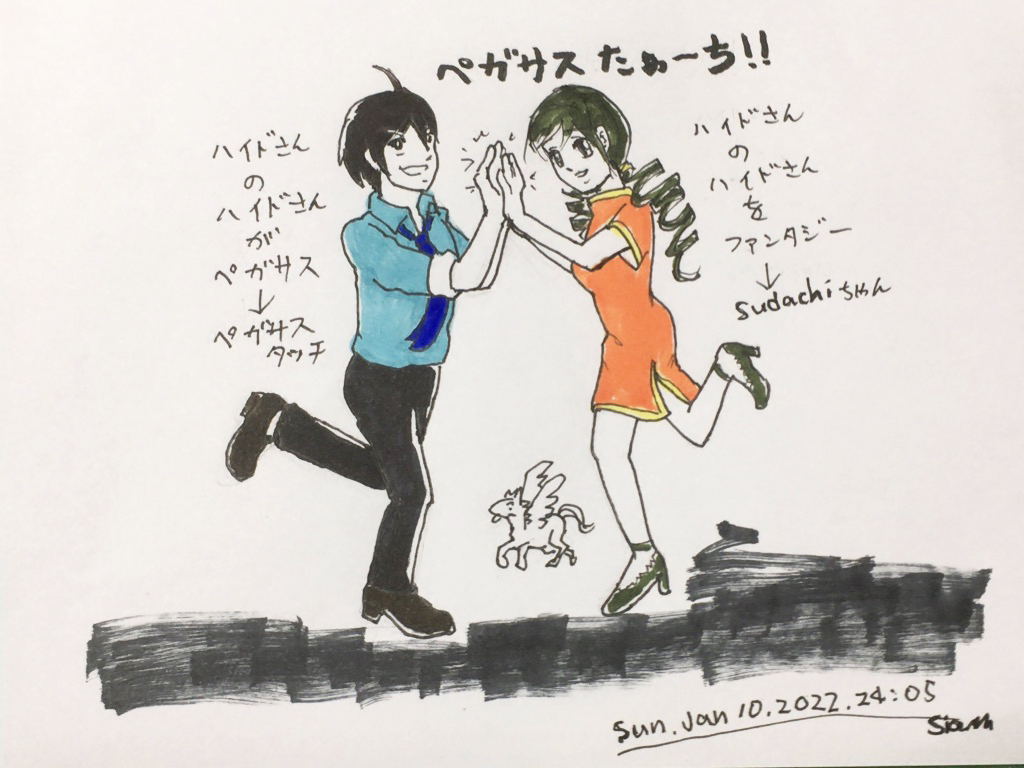 ペガサス たぁーち!!
ハイドさん
の
ハイドさん
が
ペガサス
↓
ペガサス
タッチ
ハイドさん
の
ハイドさん
を
ファンタジー
↓
sudachiちゃん
Sun. Jan 10. 2022. 24:05